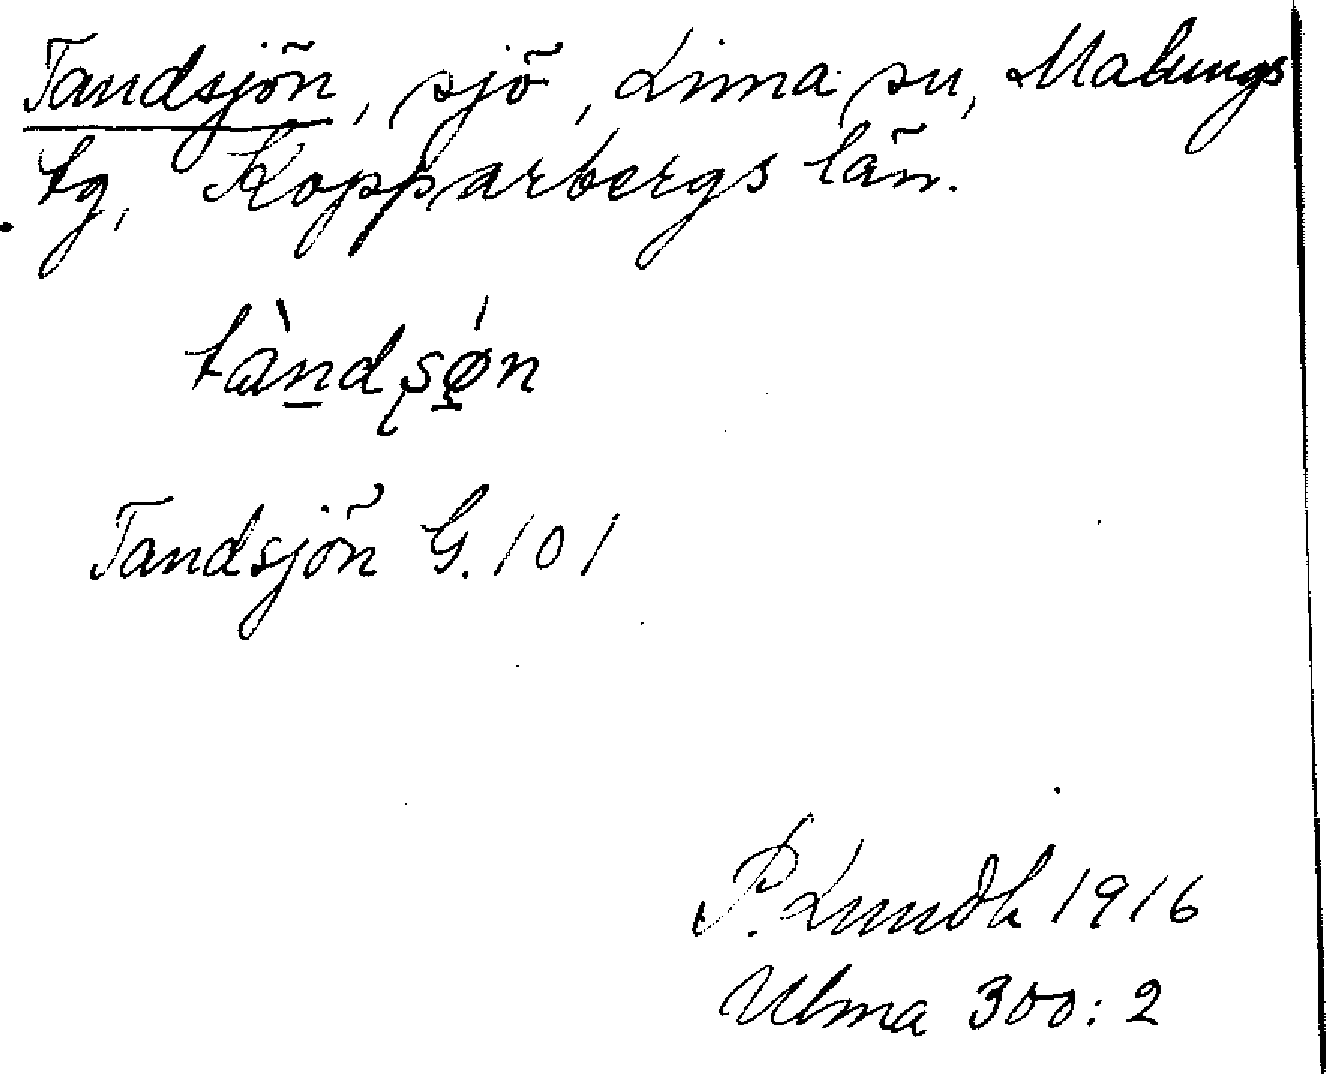 Tandsjön, sjö, Lima sn, Malungs
tg, Kopparbergs län.
tàndsǿn
Tandsjön G. 101
P. Lundh 1916
Ulma 300:2